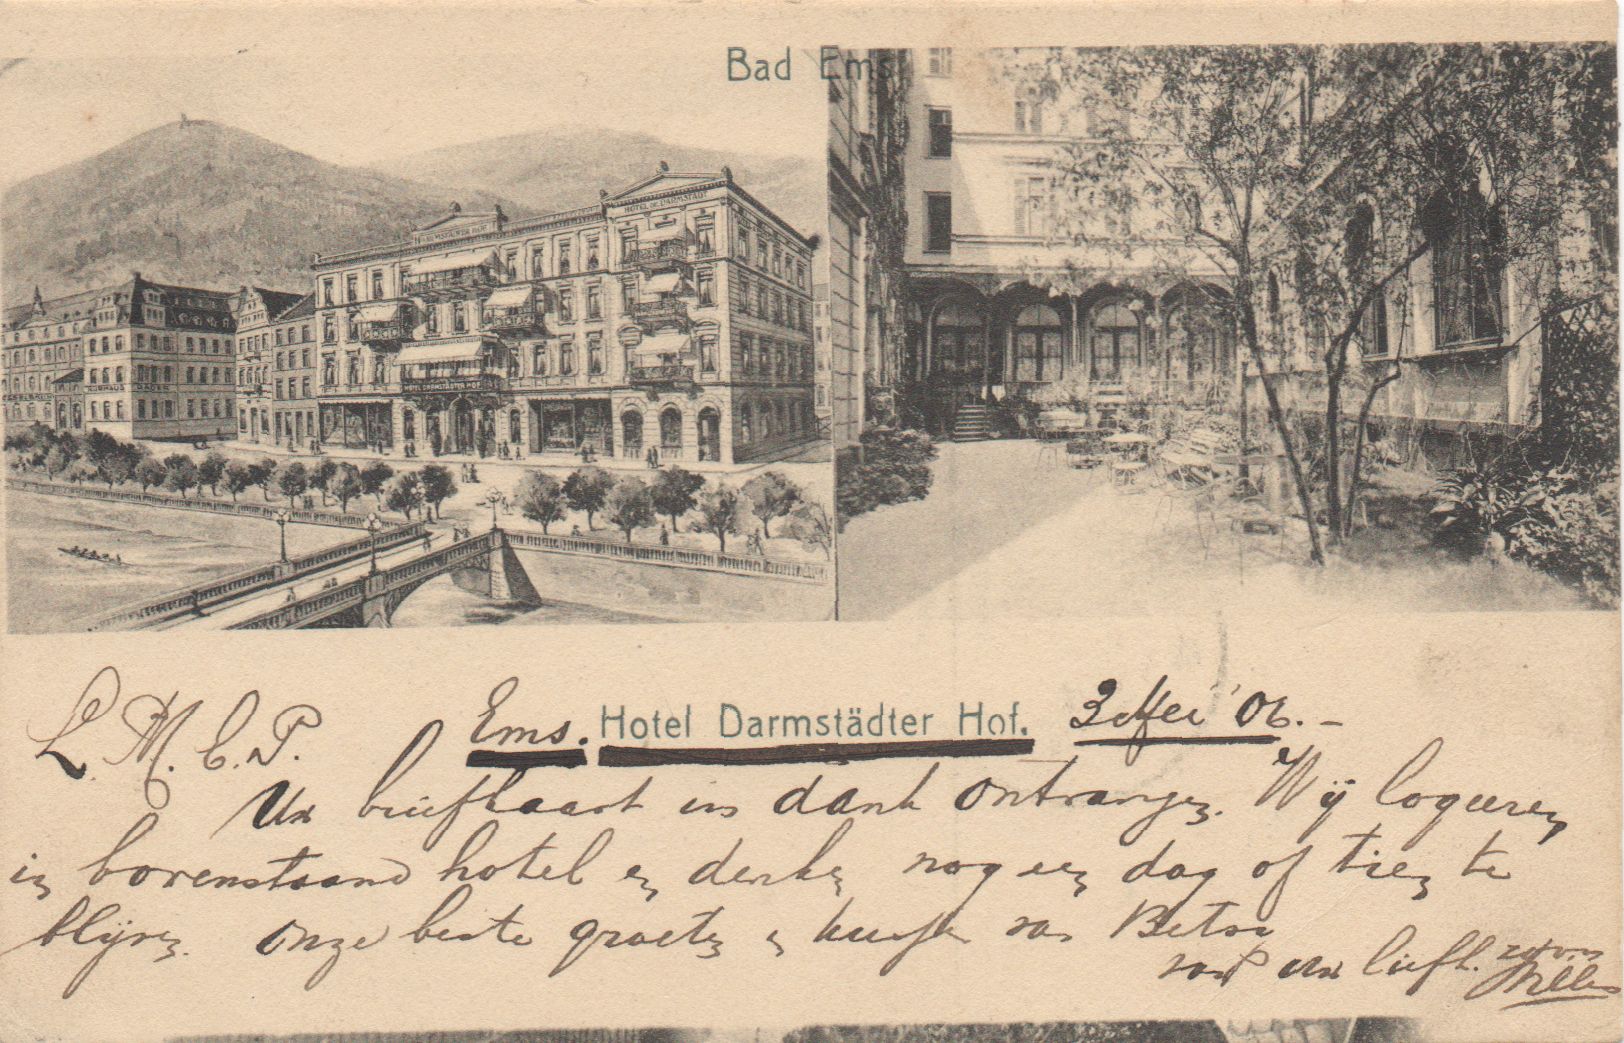 Bad Ems
HOTEL DE DARMSTADT
DARMSTÄDTER HOF
HOTEL DARMSTÄDTER HOF
KURHAUS BÄDER
Ems. Hotel Darmstädter Hof. 3 Mei '06.-
L. M. E. P.
Uw briefkaart in dank ontvangen. Wij logeeren
in bovenstaand hotel en denken nog een dag of tien te
blijven. Onze beste groeten en kussen van Betsy
van uw liefh. zoon
Willem